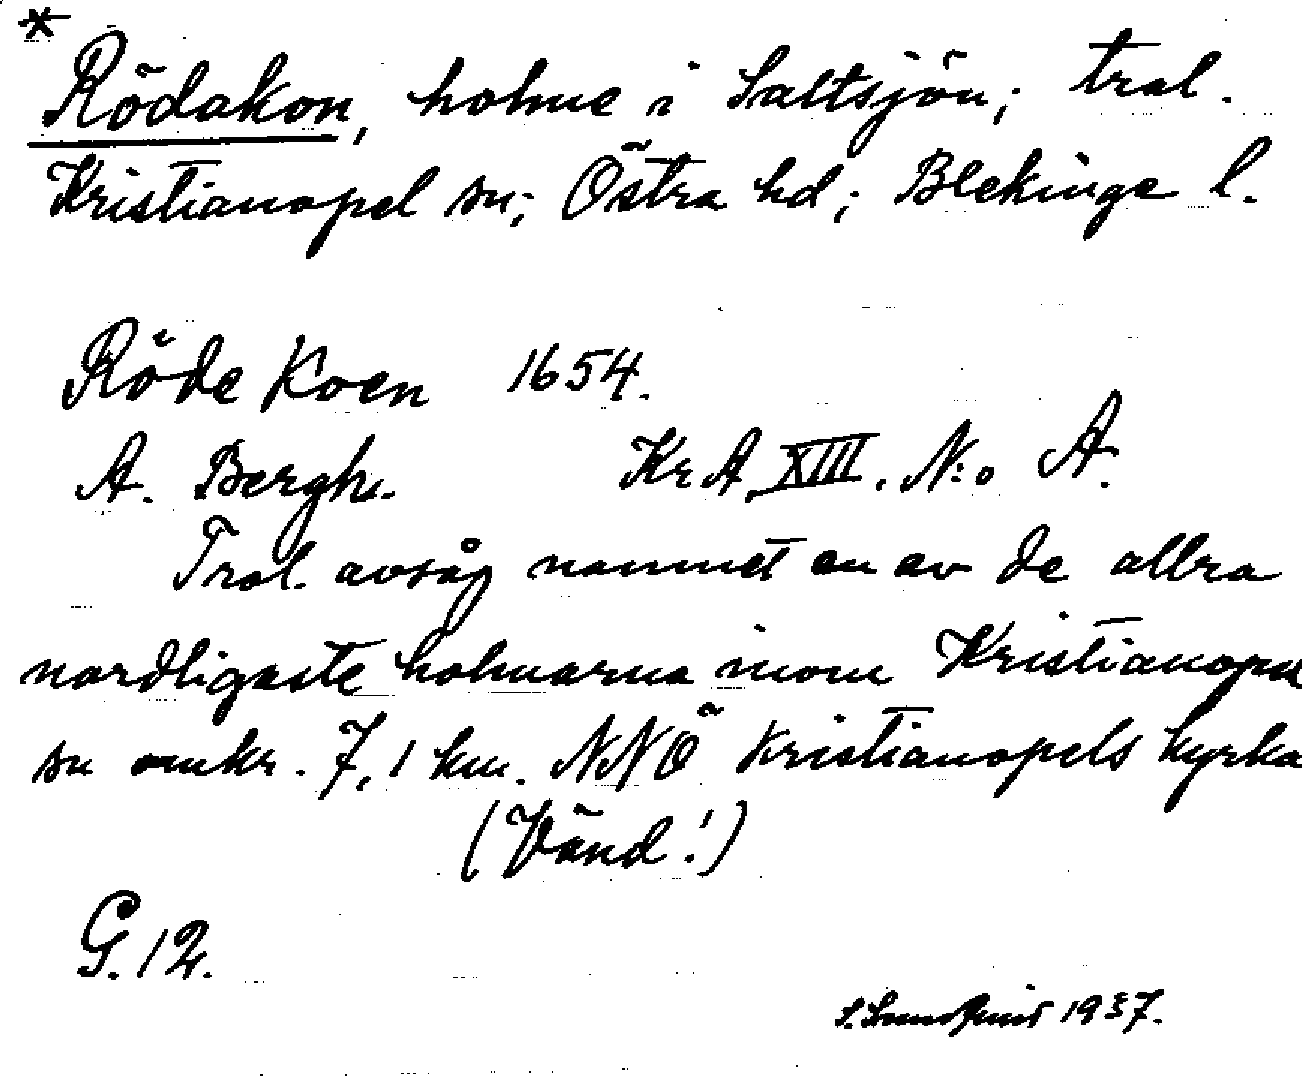 *
Rödakon, holme i Saltsjön; trol.
Kristianopel sn; Östra hd; Blekinge l.
Röde Koen 1654.
A. Bergh. Kr A. XIII. N:o A.
Trol. avsåg namnet en av de allra
nordligaste holmarna inom Kristianopel
sn omkr. 7,1 km. NNÖ Kristianopels kyrka
(Vänd!)
G. 12.
1937.